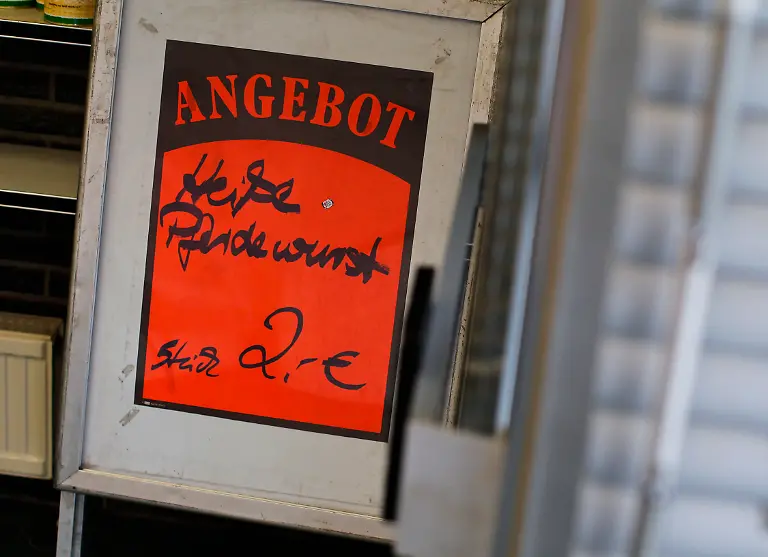 ANGEBOT
Heiße
Pferdewurst
Stück 2,-€